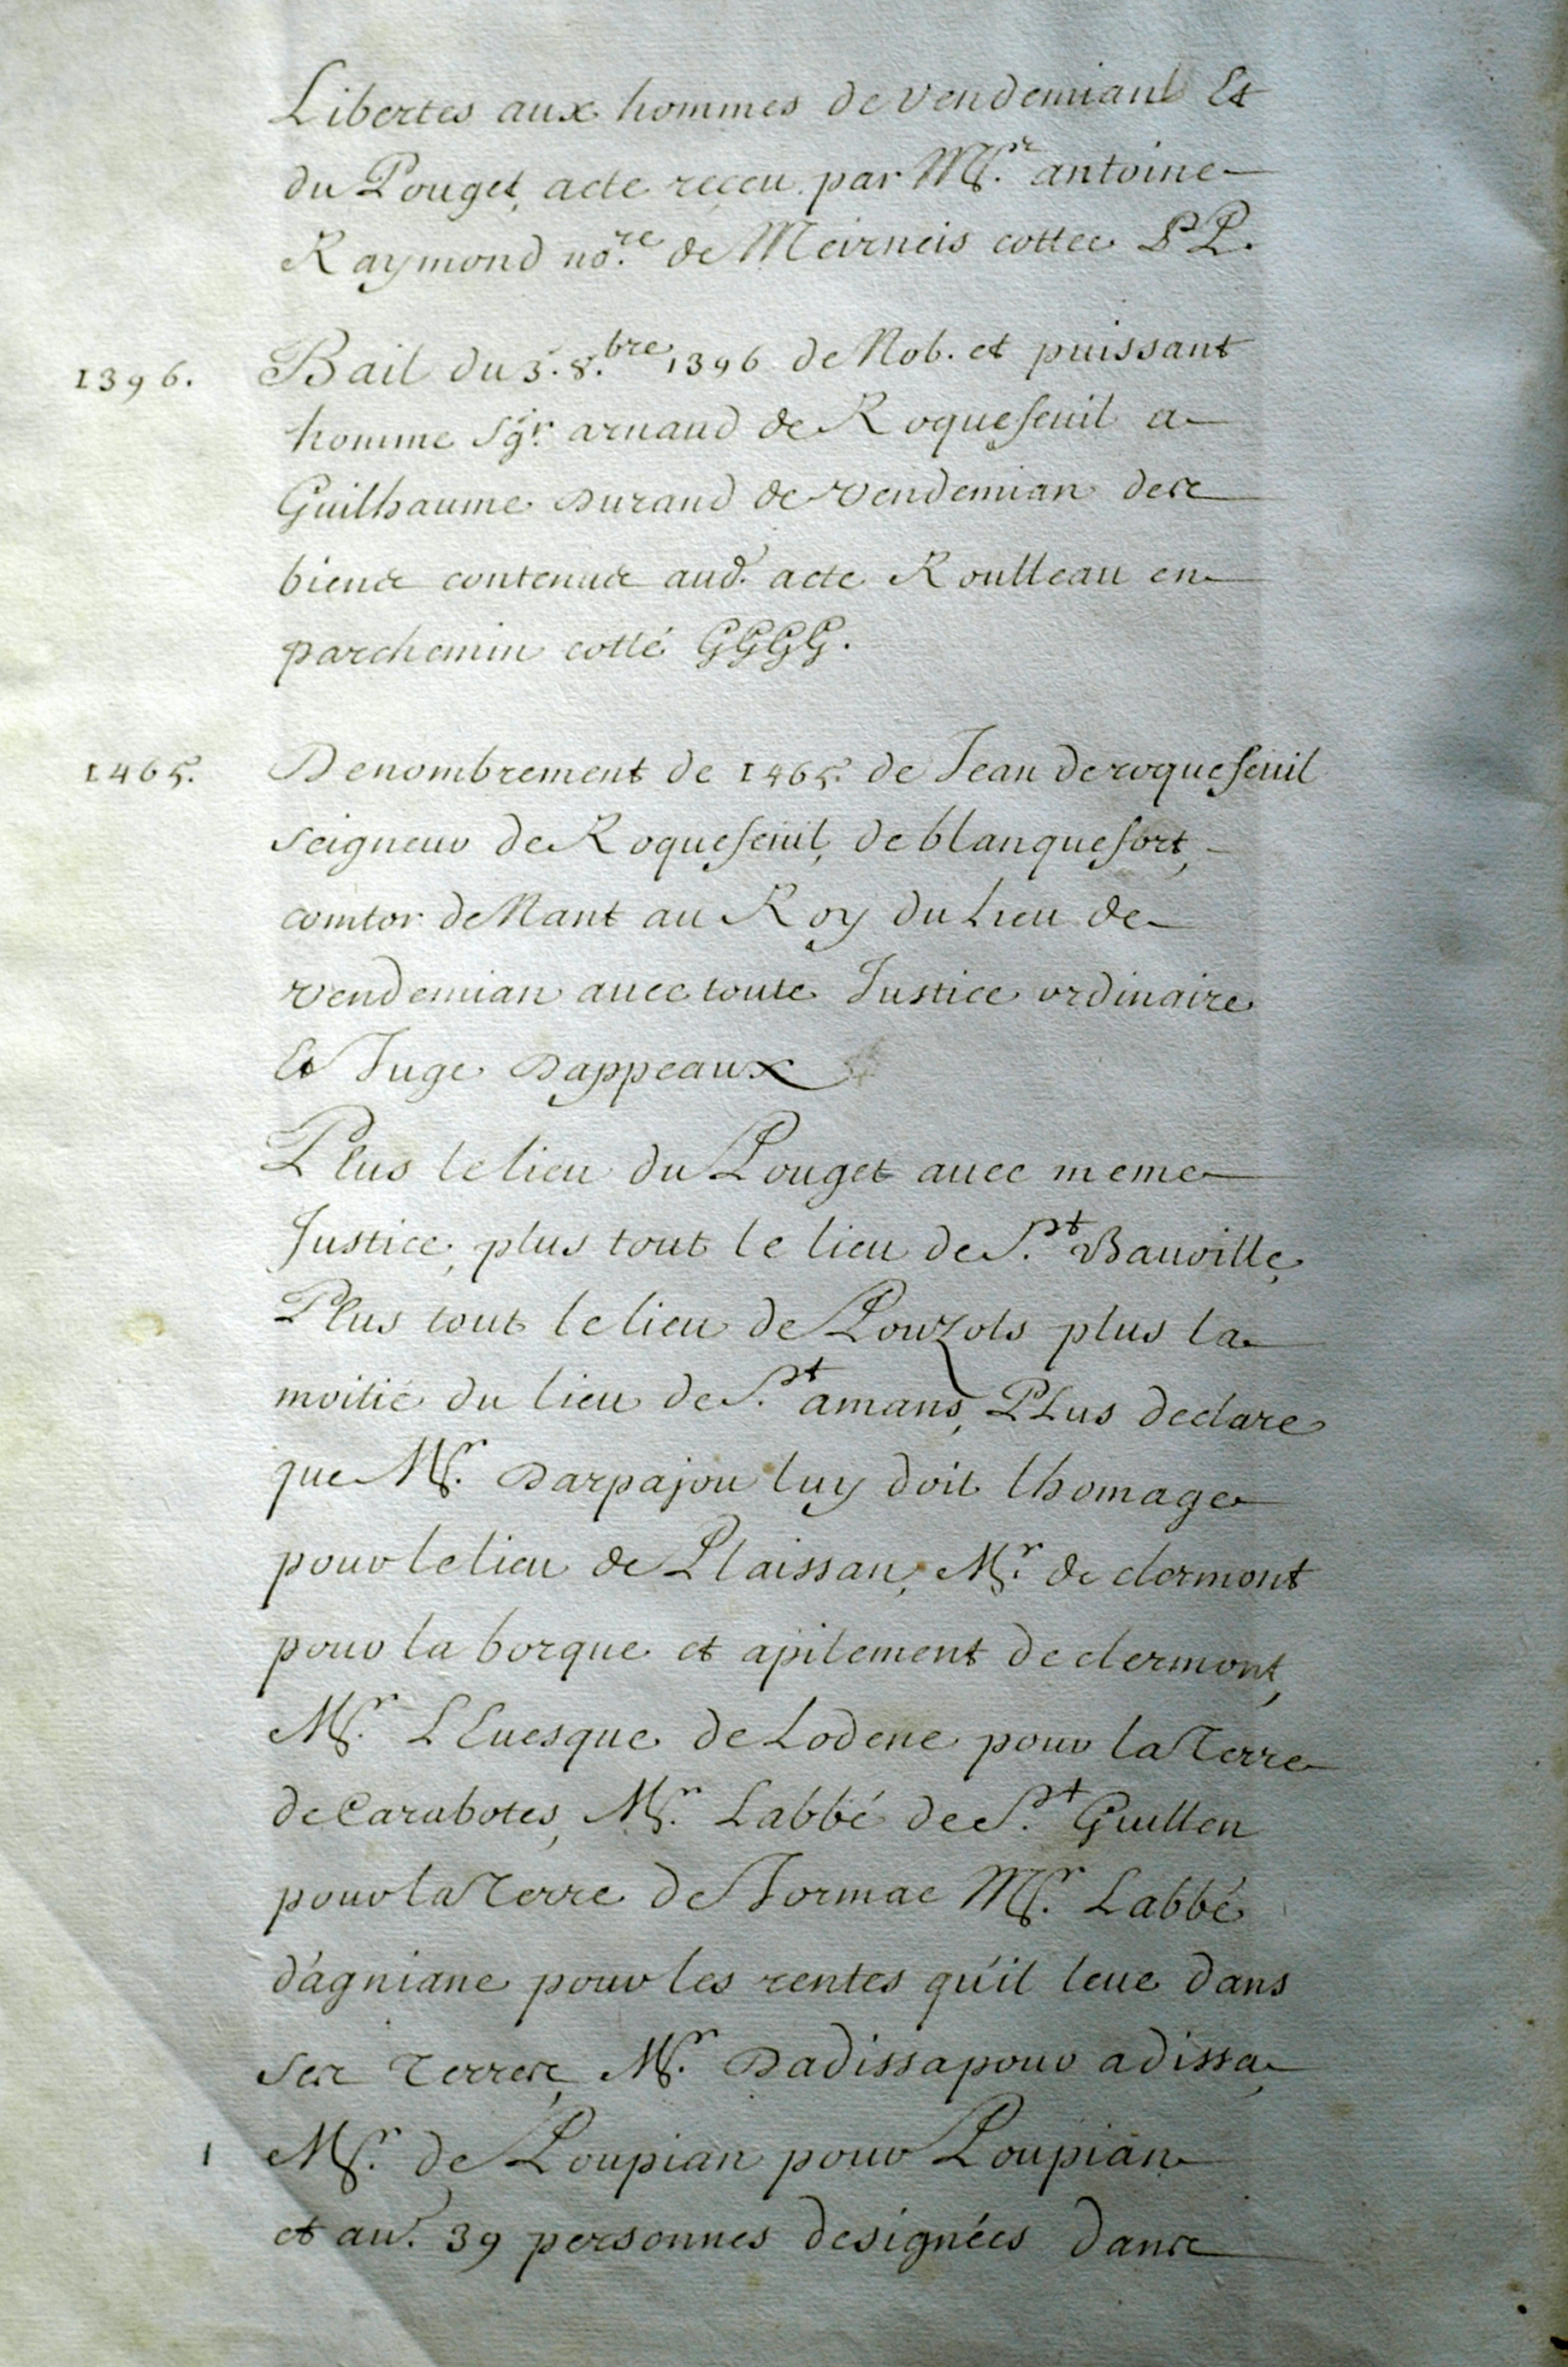 Libertes aux hommes de vendemian Et
du Pouget, acte reçeu par Mr. antoine
Raymond no.re de Meirneis cottee PP.
1396. Bail du 3. 8.bre 1396 de Nob. et puissant
homme Sgr. arnaud de Roquefeuil a
Guilhaume Durand de Vendemian des
biens contenus aud. acte Roulleau en
parchemin cotté GGGG.
1465. Denombrement de 1465. de Jean de roquefeuil
seigneur de Roquefeuil, de blanquefort,
comtor de Nant au Roy du Lieu de
vendemian avec toute Justice ordinaire
Et Juge Dappeaux
Plus le lieu du Pouget avec meme
Justice, plus tout le lieu de St. Bauville,
Plus tout le lieu de Pouzols plus la
moitié du lieu de St. amans, PLus declare
que Mr. Darpajou luy doit lhomage
pour le lieu de Plaissan, Mr. de clermont
pour la borque et apilement de clermont,
Mr. LEuesque de Lodeue pour la Terre
de Carabotes, Mr. Labbé de St. Guillen
pour la Terre de Jormac Mr. Labbé
d'agniane pour les rentes qu'il leue dans
ses Terres, Mr. Dadissa pour adissa,
Mr. de Loupian pour Loupian
et au.r 39 personnes designées dans